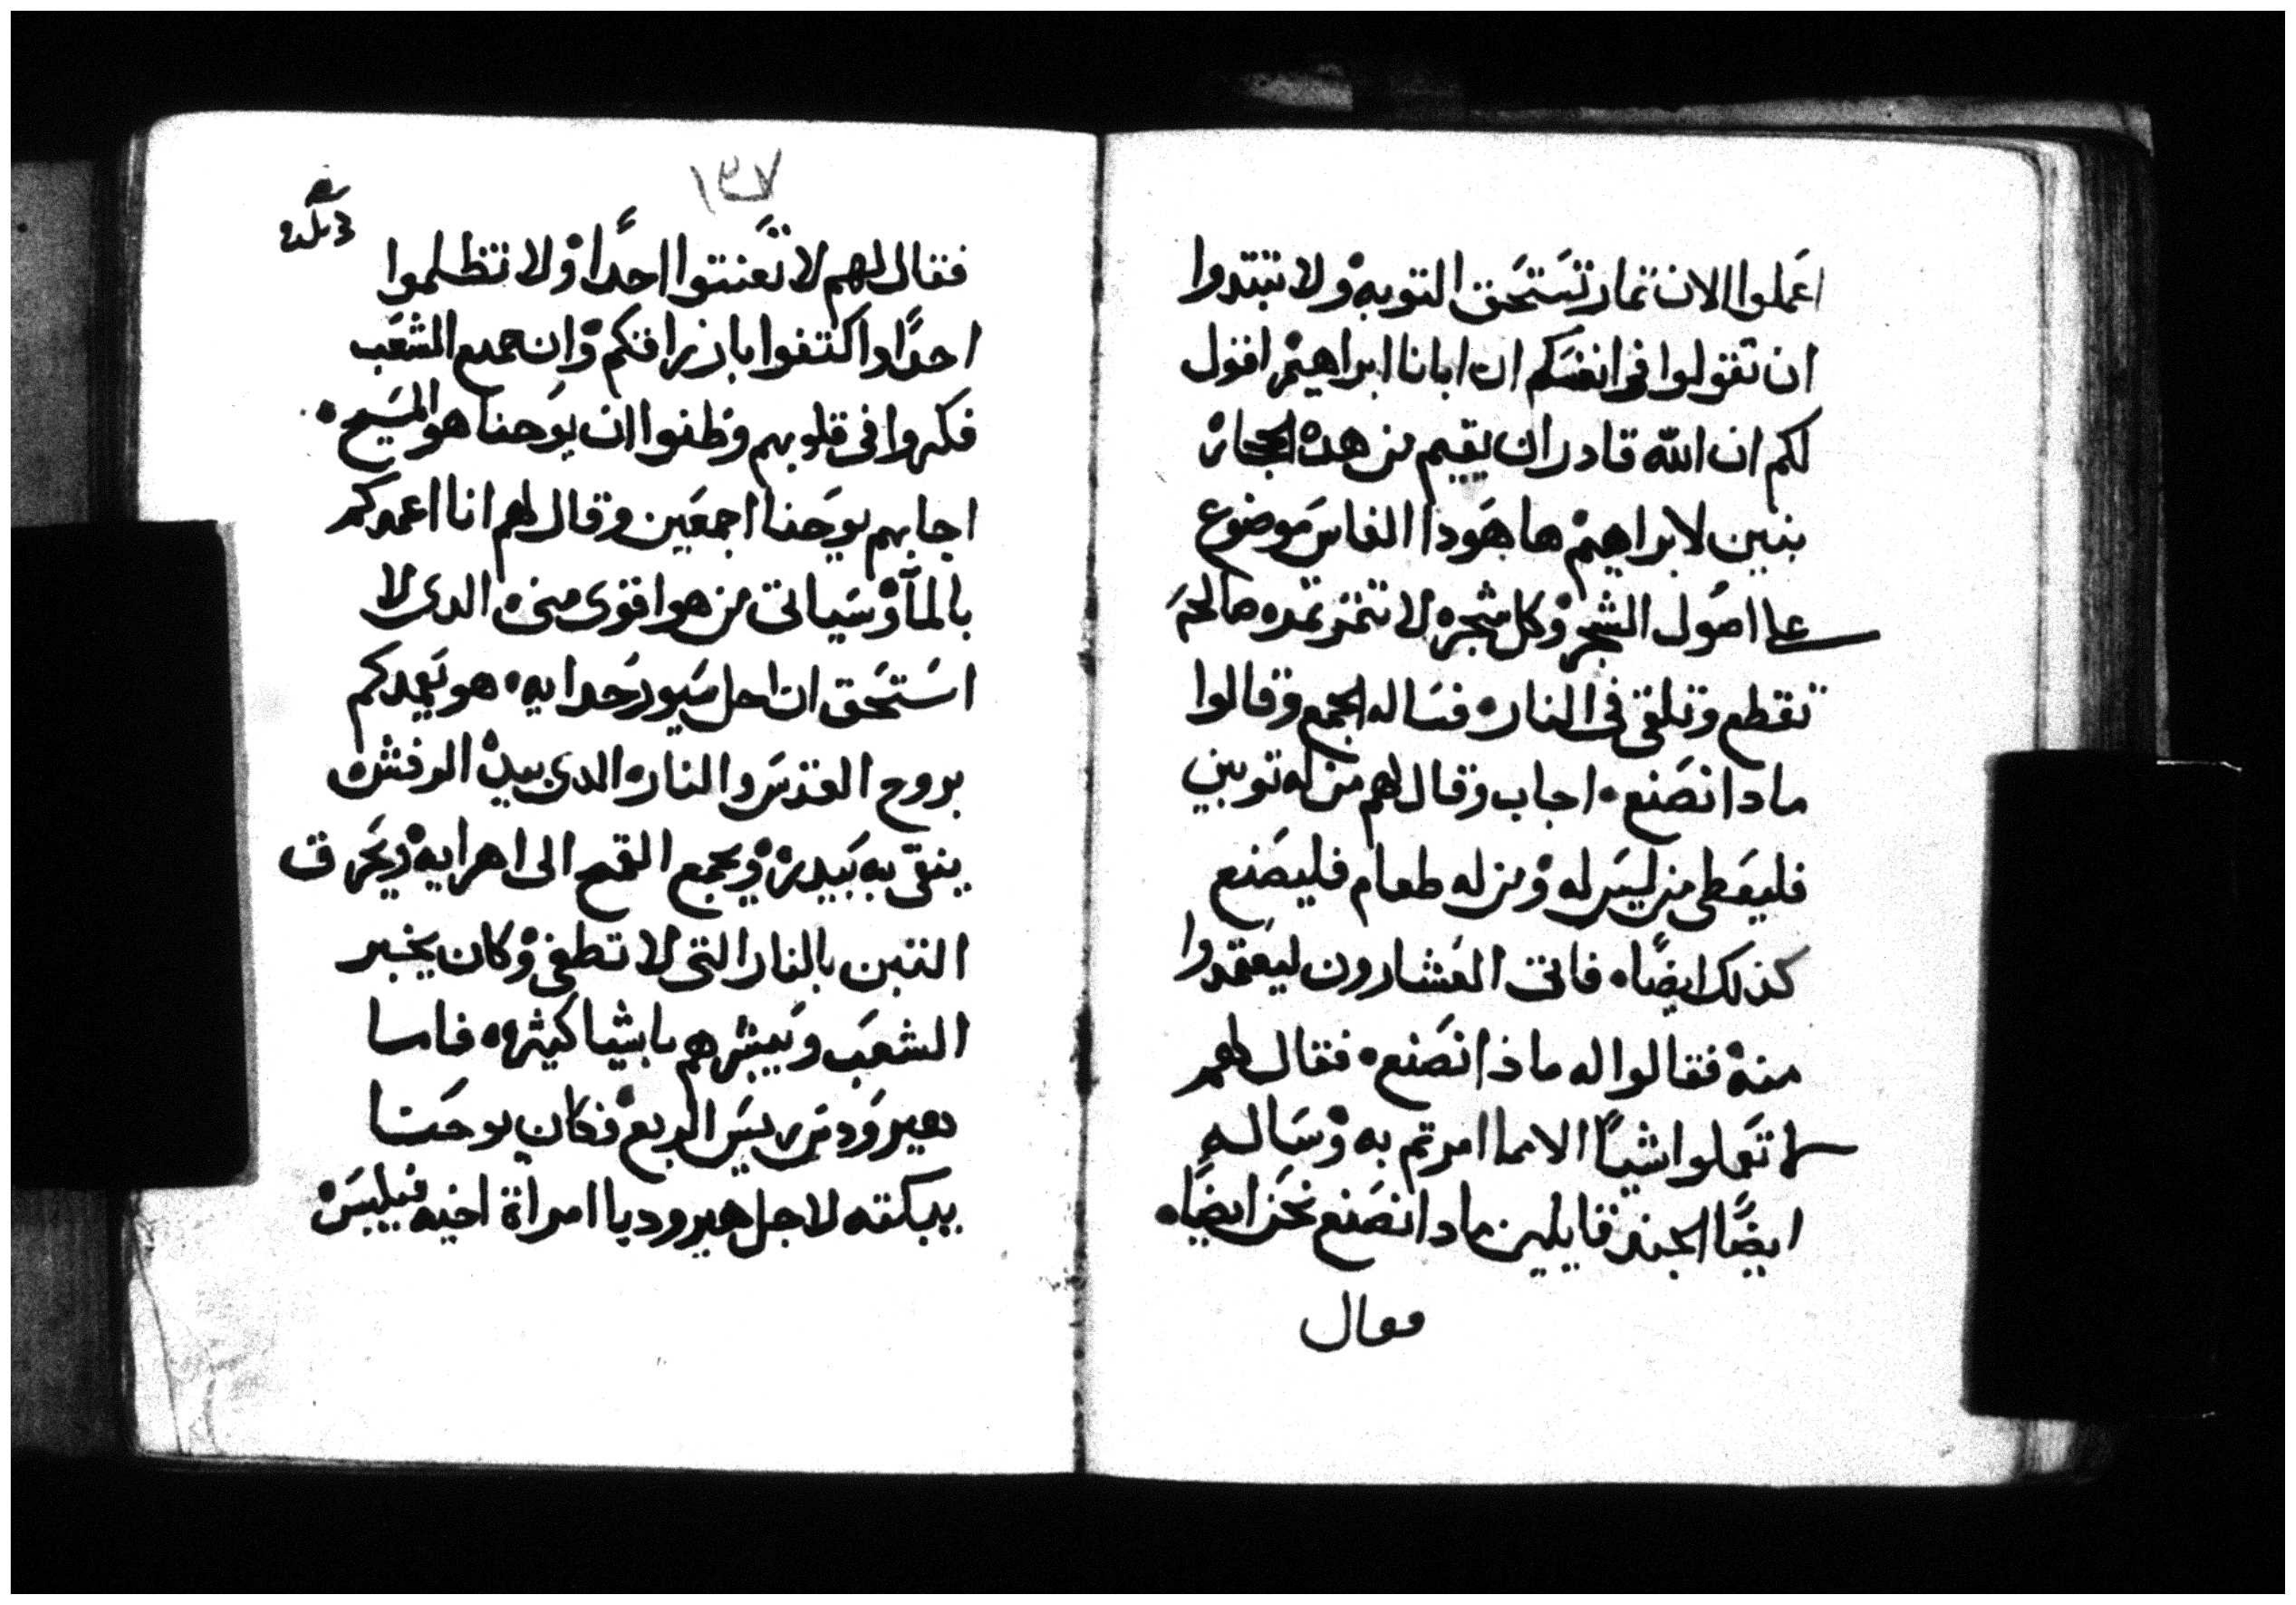 اعملوا الان تمار تستحق التوبه ولا تبتدوا
ان تقولوا فى انفسكم ان ابانا ابراهيم اقول
لكم ان الله قادر ان يقيم من هده الحجاره
بنين لابراهيم ها هودا الفاس موضوع
على اصول الشجر وكل شجره لا تتمر تمره صالحه
تقطع وتلقى فى النار • فساله الجمع وقالوا
مادا نصنع • اجاب وقال لهم من له توبين
فليعطى من ليس له ومن له طعام فليصنع
كذلك ايضًا • فاتى العشارون ليعتمدوا
منه فقالوا له ماذا نصنع • فقال لهم
لا تعملوا شيـًا الا مما امرتم به وساله
ايضًا الجند قايلين مادا نصنع نحن ايضًا •
فقال
١٣٧
فقال لهم لا تعنتوا احدًا ولا تظلموا
احدًا واكتفوا بازراقكم وان جميع الشعب
فكروا فى قلوبهم وظنوا ان يوحنا هو المسيح •
اجابهم يوحنا اجمعين وقال لهم انا اعمدكم
بالمآ وسياتى من هو اقوى منى الدى لا
استحق ان احل سيور حدايه • هو يعمدكم
بروح القدس والنار الدى بيده الرفش
ينقى به بيدره ويجمع القمح الى اهرايه ويحرق
التبن بالنار التى لا تطفى وكان يخبر
الشعب ويبشرهم باشيا كثيره • فاما
هيرودس رييس الربع فكان يوحنا
يبكته لاجل هيروديا امراة اخيه فيلبس